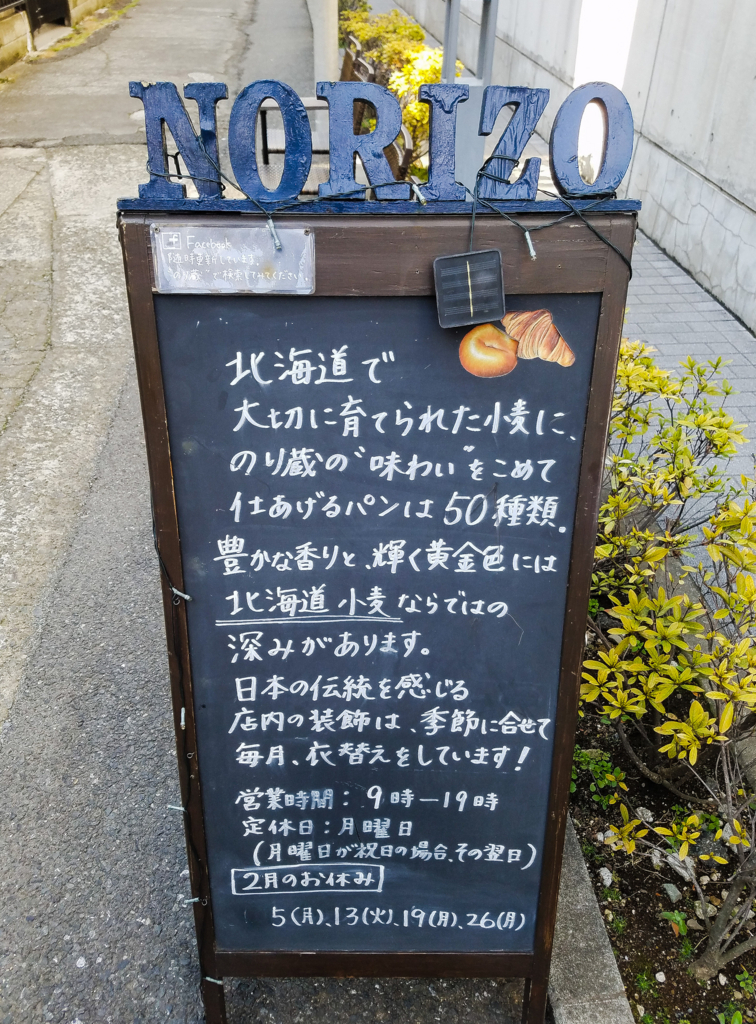 NORIZO
Facebook
随時更新しています。
"のり蔵"で検索してみてください。
北海道で
大切に育てられた小麦に、
のり蔵の"味わい"をこめて
仕あげるパンは50種類。
豊かな香りと、輝く黄金色には
北海道小麦ならではの
深みがあります。
日本の伝統を感じる
店内の装飾は、季節に合せて
毎月、衣替えをしています!
営業時間:9時ー19時
定休日:月曜日
(月曜日が祝日の場合、その翌日)
2月のお休み
5(月)、13(火)、19(月)、26(月)